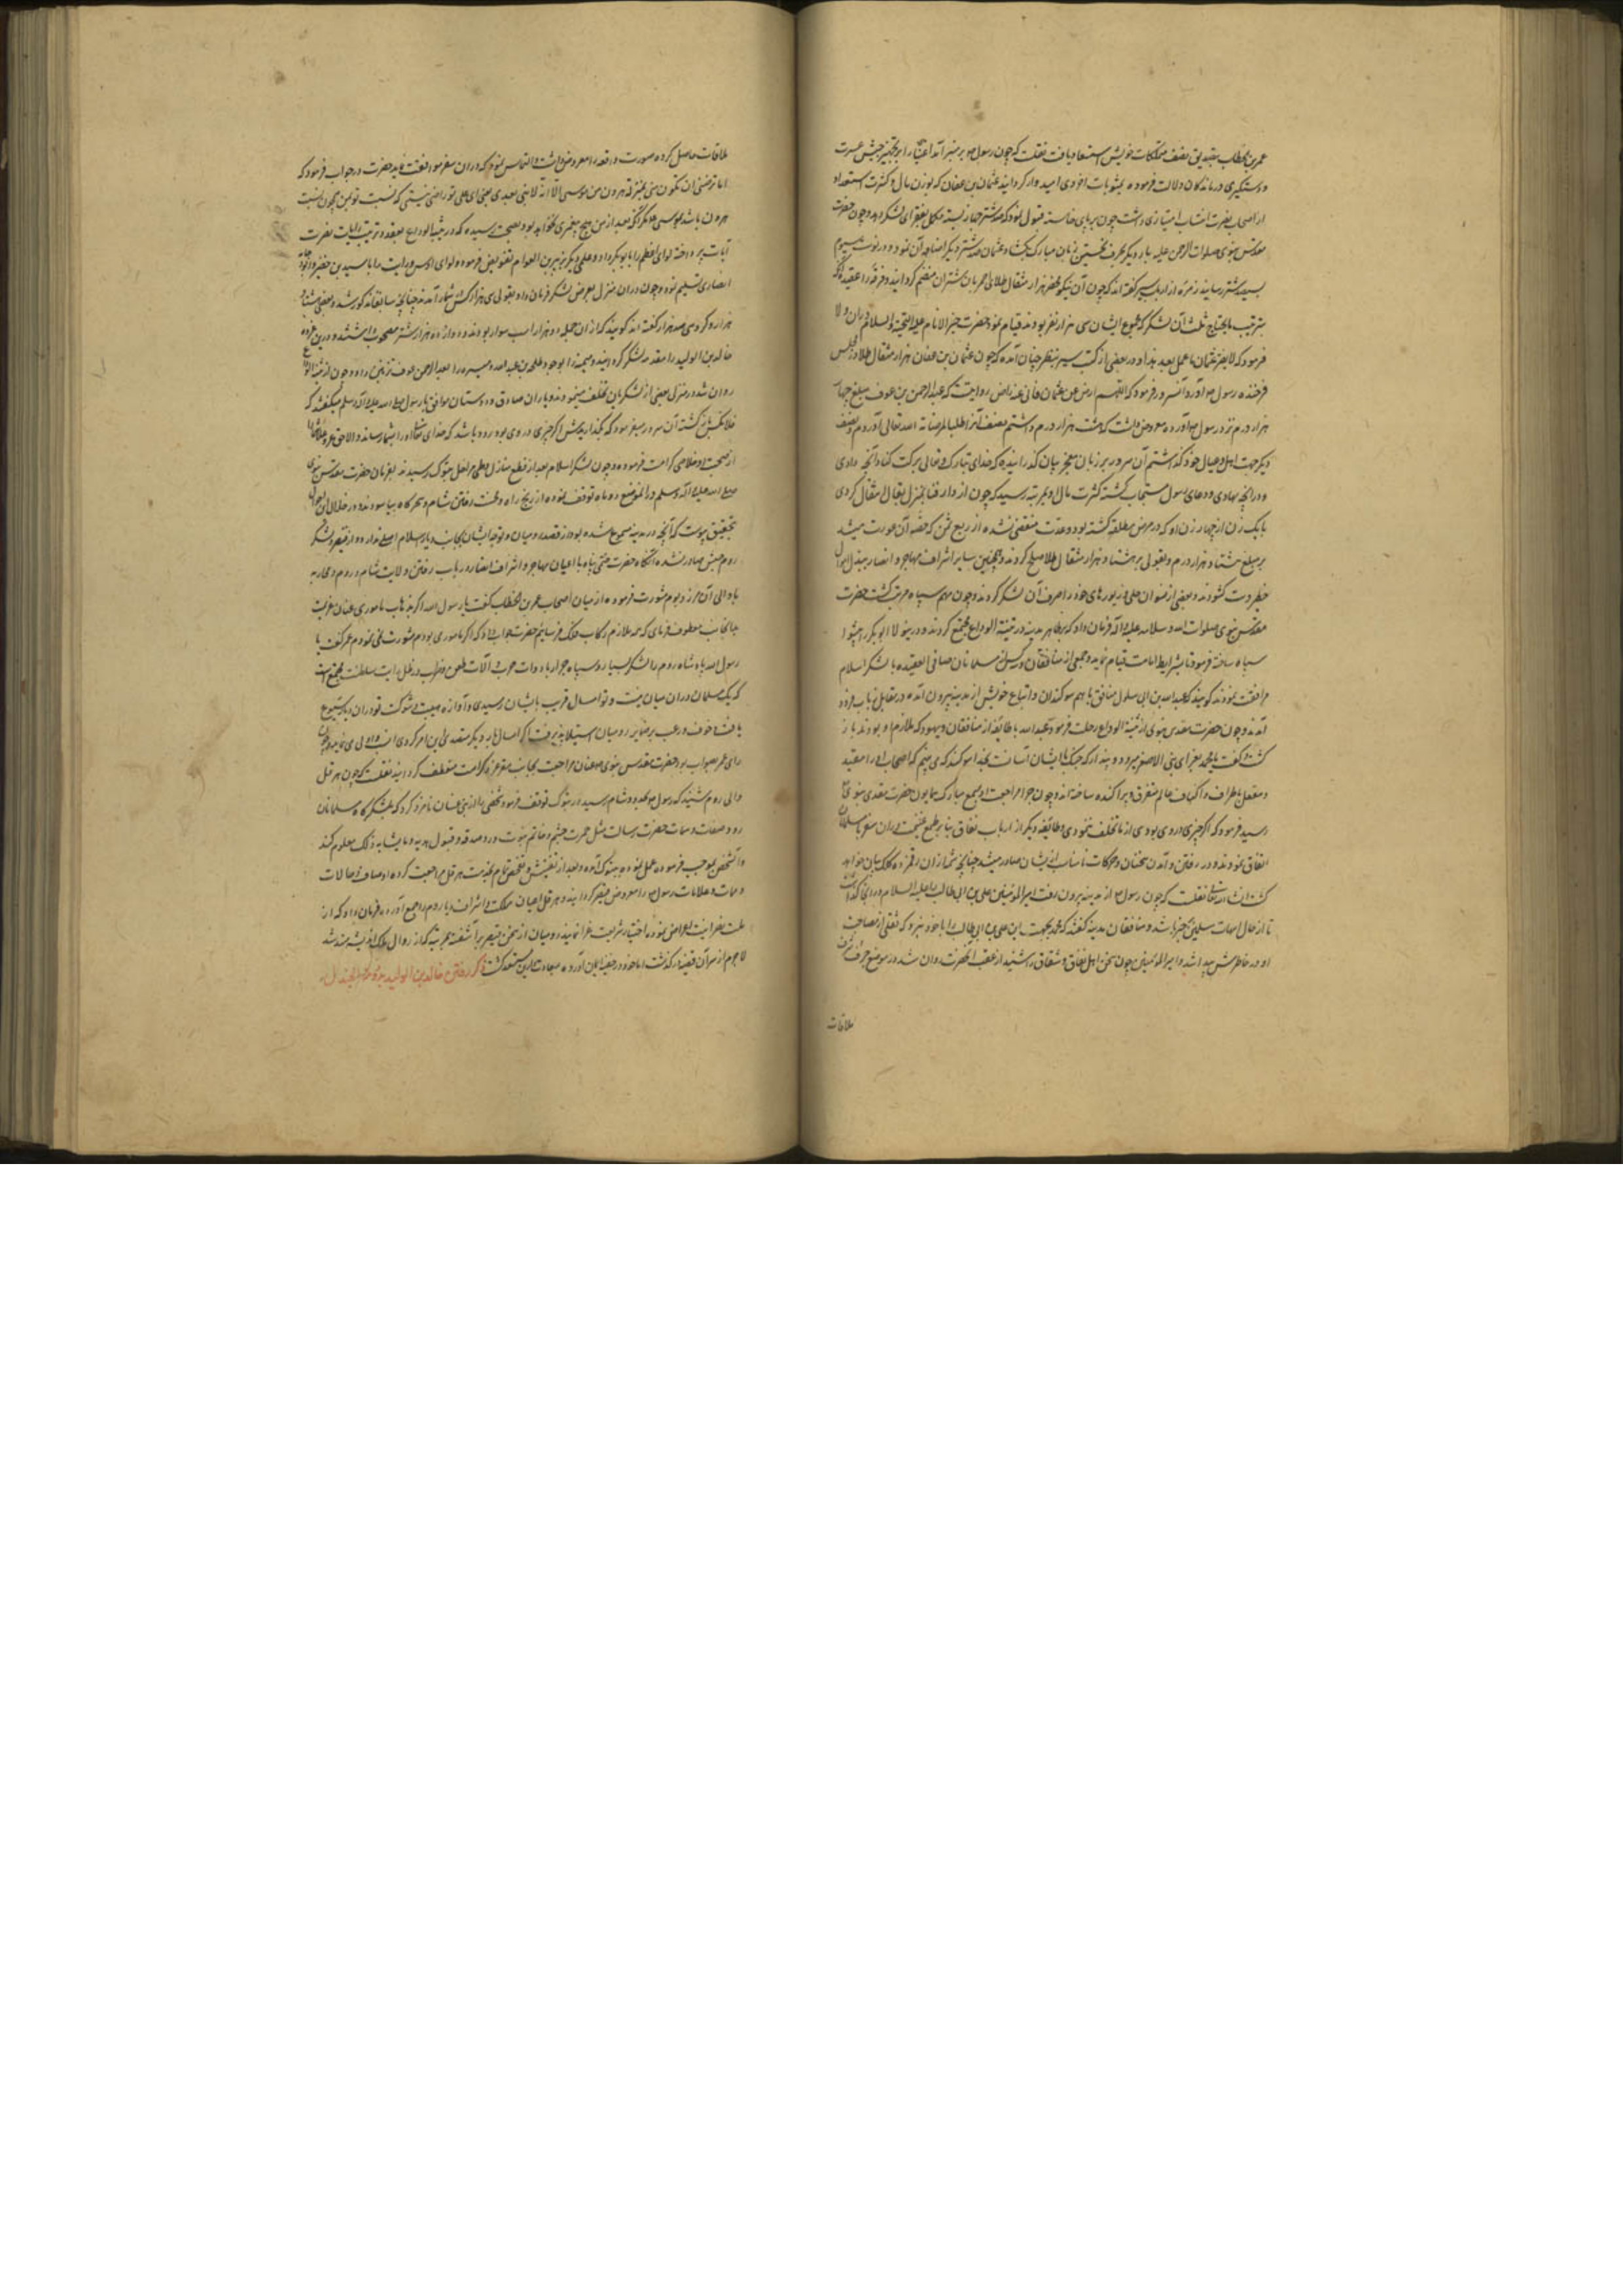 عمر بن الخطاب بتصدیق نصف متملکات خویش استسعاد یافت نقلست که چون رسول صلعم بر منبر آمد اغنیا را بر تجهیز جیش عسرت
و دستگیری درماندگان دلالت فرموده بمثوبات اخروی امیدوار گردانید عثمان بن عفان که بوزن مال و کثرت استعداد
از اصحاب نصرت انتساب امتیازی داشت چون بر پای خاسته قبول نمود که صد شتر جهاز بسته مکمل بفقرای لشکر دهد و چون حضرت
مقدس نبوی صلوات الرحمن علیه بار دیگر بحرف نخستین زبان مبارک بگشاد عثمان صد شتر دیگر اضافه آن نمود و در نوبت سیوم
بسیصد شتر رسانید زمره از ارباب سیر گفته اند که چون آن نیکو محضر هزار مثقال طلای احمر بان شتران منضم گردانید و فرقه را عقیده آنکه
بترتیب مایحتاج ثلث آن لشکر که مجموع ایشان سی هزار نفر بودند قیام نمود حضرت خیر الانام علیه التحیة والسلام
فرمود که لا یضر عثمان ما عمل بعد هذا و در بعضی از کتب سیر بنظر چنان آمده که چون عثمان بن عفان هزار مثقال طلا در مجلس
فرخنده رسول صلعم آورد آن سرور فرمود که اللهم ارض عن عثمان فانی عنه راض روایتست که عبدالرحمن بن عوف مبلغ چهار
هزار درم نزد رسول صلعم آورده معروض داشت که هشت هزار درم داشتم نصف آنرا طلبا لمرضاة الله تعالی آوردم و نصف
دیگر جهت اهل و عیال خود گذاشتم آن سرور بر زبان معجز بیان گذرانیده که خدای تبارک و تعالی برکت کناد آنچه دادی
و در آنچه نهادی و دعای رسول مستجاب گشته کثرت مال او بمرتبه رسید که چون از دار فنا بمنزل بقا انتقال کردی
با یک زن از چهار زن او که در مرض مطلقه گشته بود و عدت منقضی نشده از ربع ثمن که حصه آن عورت میشد
بر مبلغ هشتاد هزار درم و بقولی بر هشتاد هزار مثقال طلا صلح کردند و همچنین سایر اشراف مهاجر و انصار ببذل اموال
خطیر دست گشودند و بعضی از نسوان حلی و زیورهای خود را صرف آن لشکر کردند و چون مهم سپاه مرتب گشت حضرت
مقدس نبوی صلوات الله و سلامه علیه و آله فرمان داد که بظاهر مدینه در ثنیة الوداع مجتمع گردند و در منزل ابوبکر را پیشوا
سپاه ساخته فرمود تا بشرایط امامت قیام نماید و جمعی از منافقان و مسلمانان صافی العقیده با لشکر اسلام
مرافقت ننمودند گویند که عبدالله بن ابی سلول منافق با هم سوگندان و اتباع خویش از مدینه بیرون آمده در مقابل ذباب فرود
آمد و چون حضرت مقدس نبوی از ثنیة الوداع رحلت فرمود عبدالله با طایفه از منافقان و یهود که ملازم او بودند باز
گشت و گفت محمد بغزای بنی الاصفر میرود و پندارد که جنگ با ایشان آسانست بخدا سوگند که می بینم که اصحاب او را مقید
و مغلول باطراف و اکناف عالم متفرق و پراکنده ساخته اند و چون خبر مراجعت او بسمع مبارک همایون حضرت مقدس نبوی
رسید فرمود که اگر چیزی در وی بودی از ما تخلف ننمودی و طایفه دیگر از ارباب نفاق بنا بر طمع غنیمت در آن سفر با مسلمانان
اتفاق نمودند و در رفتن و آمدن سخنان و حرکات نامناسب از ایشان صادر میشد چنانچه شمه از آن رقمزده کلک بیان خواهد
گشت انشاءالله تعالی نقلست که چون رسول صلعم از مدینه بیرون رفت امیرالمومنین علی بن ابی طالب علیه السلام در آنجا گذاشت
تا از حال امهات مسلمین خبر باشد و منافقان مدینه گفتند که محمد بجهت این علی بن ابی طالب را با خود نبرد که ثقلی از مصاحبت
او در خاطرش پیدا شد و امیرالمومنین چون سخن اهل نفاق و شقاق را شنید از عقب آنحضرت روان شد در موضع جرف شرف
ملاقات
ملاقات حاصل کرده صورت واقعه را معروض داشت و التماس نمود که در آن سفر موافقت نماید حضرت در جواب فرمود که
اما ترضی ان تکون منی بمنزلة هرون من موسی الا انه لا نبی بعدی یعنی ای علی تو راضی نیستی که نسبت تو بمن همچون نسبت
هرون باشد بموسی مگر آنکه بعد از من هیچ پیغمبری نخواهد بود و بصحت رسیده که در ثنیة الوداع بعقد و ترتیب رایات نصرت
آیات پرداخته لوای اعظم را بابوبکر داد و علمی دیگر بزبیر بن العوام تفویض فرمود و لوای اوس و رایت را باسید بن حضیر و
انصاری تسلیم نمود و چون در آن منزل بعرض لشکر فرمان داد بقولی سی هزار کس بشمار آمدند چنانچه سابقا مذکور شد و بعضی هفتاد
هزار و گروهی صد هزار گفته اند گویند که از آن جمله ده هزار اسب سوار بودند و دوازده هزار شتر مصحوب داشتند و درین غزوه
خالد بن الولید را مقدمه لشکر گردانید و میمنه را بوجود طلحه بن عبدالله و میسره را بعبدالرحمن عوف تزیین داد و چون از ثنیة الوداع
روان شد در منزل بعضی از لشکریان تخلف مینمودند و یاران صادق و دوستان موافق با رسول صلی الله علیه و آله و سلم میگفتند که
فلانکس باز گشته آن سرور میفرمود که بگذاریدش اگر چیزی در وی بود زود باشد که خدای تعالی او را بشما رساند و الا حق عز و علا شما را
از صحبت او خلاصی کرامت فرموده و چون لشکر اسلام بعد از قطع منازل و طی مراحل بتبوک رسیدند بفرمان حضرت مقدس نبوی
صلی الله علیه و آله و سلم در آن موضع دو ماه توقف نموده از رنج راه و محنت رفتن شام و سحرگاه بیاسودند و در خلال این احوال
بتحقیق پیوست که آنچه در مدینه مسموع شده بود از قصد رومیان و توجه ایشان بجانب دیار اسلام اصلی ندارد و از قیصر و لشکر
روم جنبش صادر نشده آنگاه حضرت ختمی پناه با اعیان مهاجر و اشراف انصار در باب رفتن ولایت شام و روم و محاربه
با والی آن مرز و بوم مشورت فرموده از میان اصحاب عمر بن الخطاب گفت یا رسول الله اگر بذهاب ماموری عنان عزیمت
بدانجانب معطوف فرمای که همه ملازم رکاب فلک فرسائیم حضرت جواب داد که اگر مامور می بودم مشورت نمی نمودم عمر گفت یا
رسول الله پادشاه روم را لشکر بسیار و سپاه جرار با ادوات حرب و آلات طعن و ضرب در ظل رایت سلطنت مجتمع است
که یک مسلمان در آن میان نیست و تو امسال قریب بایشان رسیدی و آوازه هیبت و شوکت تو در آن دیار شیوع
یافت و خوف و رعب بر ضمایر رومیان استیلا پذیرفت اگر امسال باز گردی و سال دیگر متصدی این امر گردی انسب و اولی می نماید چون
رای عمر صواب بود حضرت مقدس نبوی صلعم عنان مراجعت بجانب مقر عز و کرامت منعطف گردانید نقلست که چون هرقل
والی روم شنید که رسول صلعم بحدود شام رسید در تبوک توقف فرمود شخصی را از بنی غسان نامزد کرد که بلشکرگاه مسلمانان
رود و صفات و سمات حضرت رسالت مثل حمرت چشم و خاتم نبوت و رد صدقه و قبول هدیه و ما یشابه ذلک معلوم کند
و آن شخص بموجب فرموده عمل نموده بتبوک آمده و بعد از تفتیش و تفحص تمام بخدمت هرقل مراجعت کرده اوصاف و حالات
و سمات و علامات رسول صلعم را معروض قیصر گردانید و هرقل اعیان مملکت و اشراف دیار روم را جمع آورده فرمان داد که از
ملت نصرانیت اعراض نموده اختیار شریعت غرا نمایند رومیان از سخن قیصر برآشفتند بمرتبه که از زوال ملک اندیشه مند شد
لاجرم از سر آن قضیه درگذشت اما خود در خفیه ایمان آورده بسعادت دارین مستسعد گشت ذکر رفتن خالد بن الولید بدومة الجندل